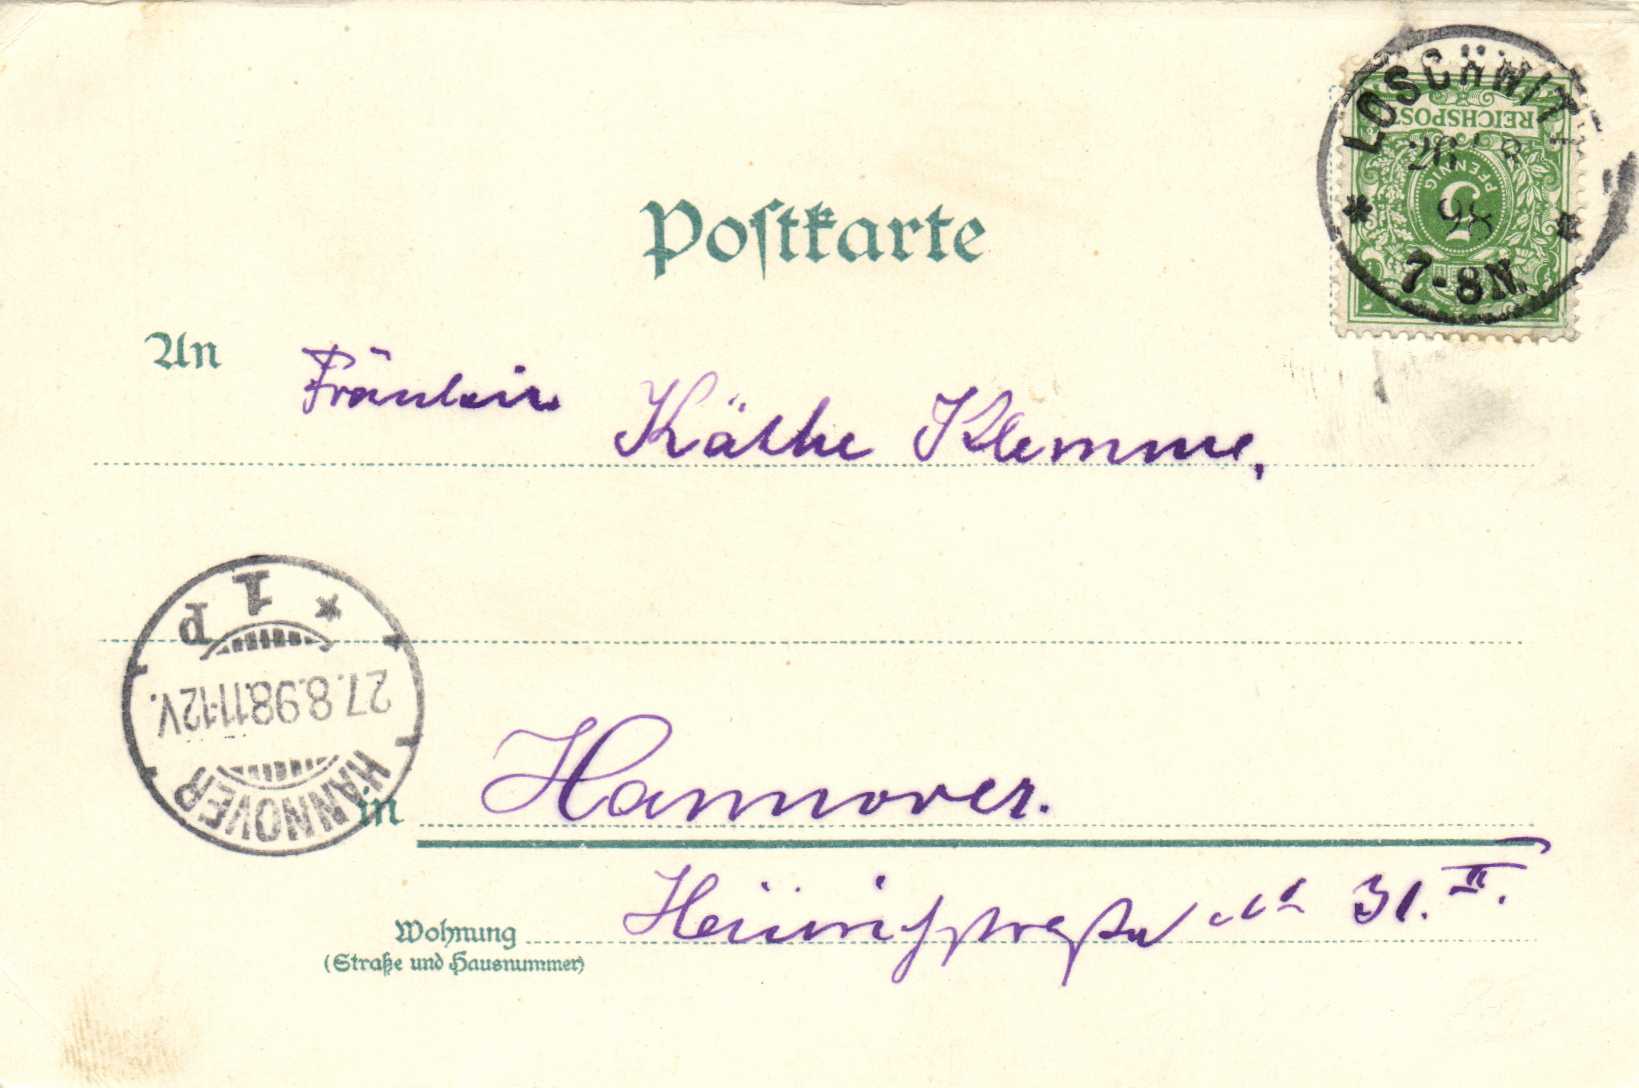 LOSCHWITZ
REICHSPOST
26 8
PFENNIG
5
98
7-8N
Postkarte
An Fräulein Käthe Klemme,
1 P
27.8.98.11-12V.
HANNOVER
in Hannover.
Wohnung Heinrichstraße 31. II.
(Straße und Hausnummer)